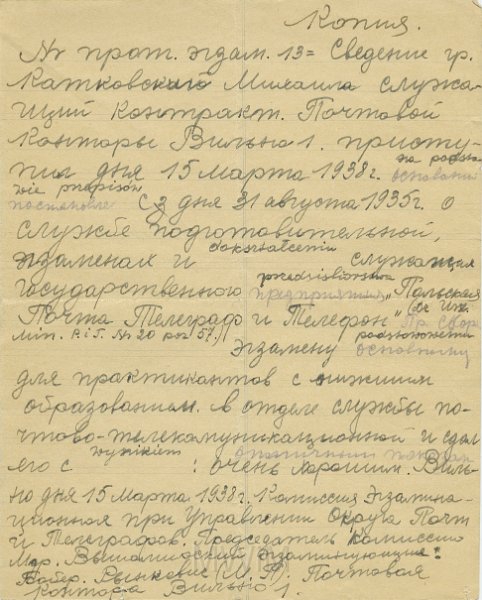 Копия.
№ прот. экзам. 13= Сведение гр.
Катковского Михаила служа-
щий контракт. Почтовой
Конторы Вильно 1. присту-
на podsta-
пил дня 15 Марта 1938г. основании
wie przepisów
постановле с дня 31 августа 1935г. о
службе подготовительной,
dokształceniu
экзаменах и служащих
przedsiębiorstwa
государственного предприятия "Польская
Почта Телеграф и Телефон"
Min. P. i T. № 20 poz 57.)
podstawowemu
экзамену основному
для практикантов с низшим
образованием. в отделе службы по-
чтово-телекомуникационной и сдал
wynikiem
его с : очень хорошим. Виль-
но дня 15 Марта 1938г. Комиссия Экзамина-
ционная при Управлении Округа Почт
и Телеграфов. Председатель Комиссии
Мгр. Экзаминующие:
(М. П.) Почтовая
Контора Вильно 1.